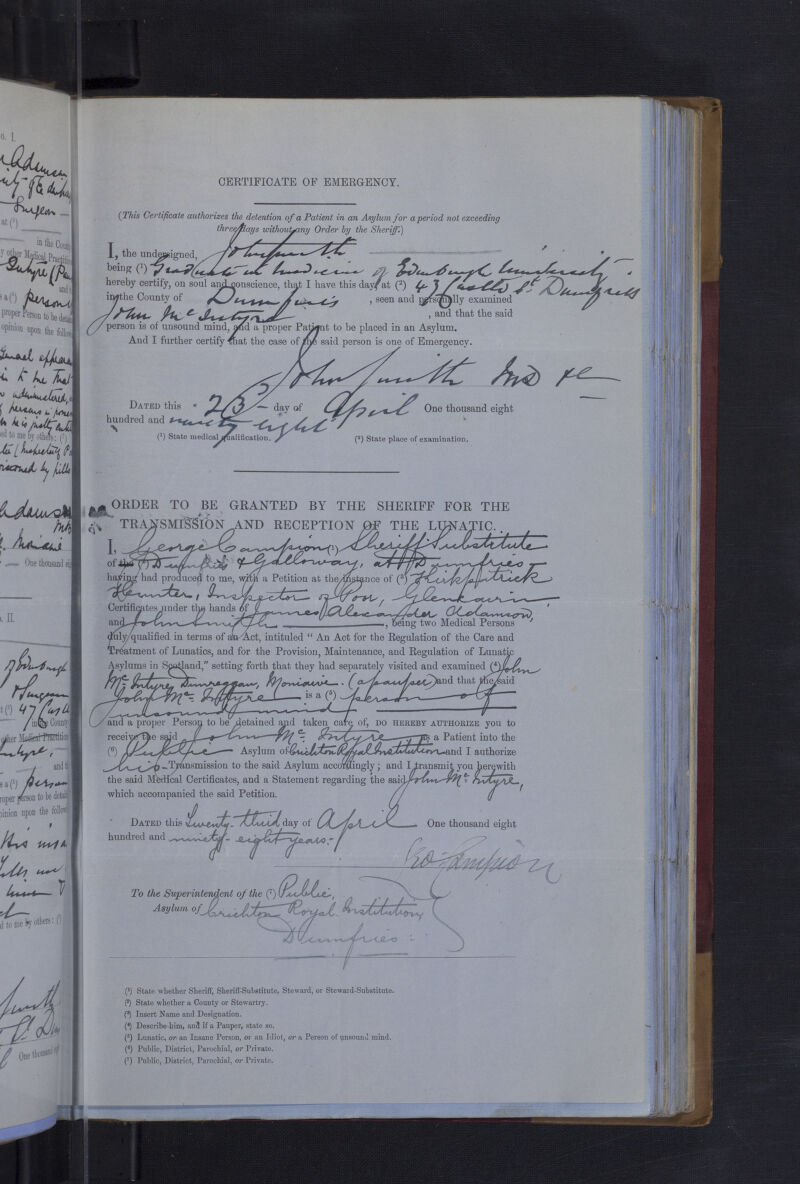 o. I.
Surgeon
at (²)
in the County
y other Medical Practition
person
proper Person to be detai
opinion upon the follow
ed to me by others: (³)
One thousand eig
o. II.
of Edinburgh
& Surgeon
t (²) 47 Castle
in the County
other Medical Practition
and t
s a (³) person
roper Person to be detai
pinion upon the follow
d to me by others: (³)
One thousand eig
CERTIFICATE OF EMERGENCY.
(This Certificate authorizes the detention of a Patient in an Asylum for a period not exceeding
three days without any Order by the Sheriff.)
I, the undersigned, John Smith
being (¹) Graduate in medicine of Edinburgh University.
hereby certify, on soul and conscience, that I have this day, at (²) 43 Castle St. Dumfries
in the County of Dumfries, seen and personally examined
John McIntyre, and that the said
person is of unsound mind, and a proper Patient to be placed in an Asylum.
And I further certify that the case of the said person is one of Emergency.
John Smith MD &c
DATED this 23 day of April One thousand eight
hundred and ninety eight
(¹) State medical qualification. (²) State place of examination.
ORDER TO BE GRANTED BY THE SHERIFF FOR THE
TRANSMISSION AND RECEPTION OF THE LUNATIC.
I, George Campion (¹) Sheriff Substitute
of the (²) Dumfries & Galloway, at Dumfries
having had produced to me, with a Petition at the instance of (³) Kirkpatrick
Hunter, Inspector of Poor, Glencairn
Certificates under the hands of James Alexander Adamson,
and John Smith, being two Medical Persons
duly qualified in terms of an Act, intituled "An Act for the Regulation of the Care and
Treatment of Lunatics, and for the Provision, Maintenance, and Regulation of Lunatic
Asylums in Scotland," setting forth that they had separately visited and examined (⁴) John
McIntyre, Dunreggan, Moniaive. (a pauper) and that the said
John McIntyre is a (⁵) person of
unsound mind
and a proper Person to be detained and taken care of, DO HEREBY AUTHORIZE you to
receive the said John McIntyre as a Patient into the
(⁶) Public Asylum of Crichton Royal Institution and I authorize
his Transmission to the said Asylum accordingly; and I transmit you herewith
the said Medical Certificates, and a Statement regarding the said John McIntyre,
which accompanied the said Petition.
DATED this Twenty-third day of April One thousand eight
hundred and ninety-eight years.
Geo Campion
To the Superintendent of the (⁷) Public,
Asylum of Crichton Royal Institution,
Dumfries.
(¹) State whether Sheriff, Sheriff-Substitute, Steward, or Steward-Substitute.
(²) State whether a County or Stewartry.
(³) Insert Name and Designation.
(⁴) Describe him, and if a Pauper, state so.
(⁵) Lunatic, or an Insane Person, or an Idiot, or a Person of unsound mind.
(⁶) Public, District, Parochial, or Private.
(⁷) Public, District, Parochial, or Private.